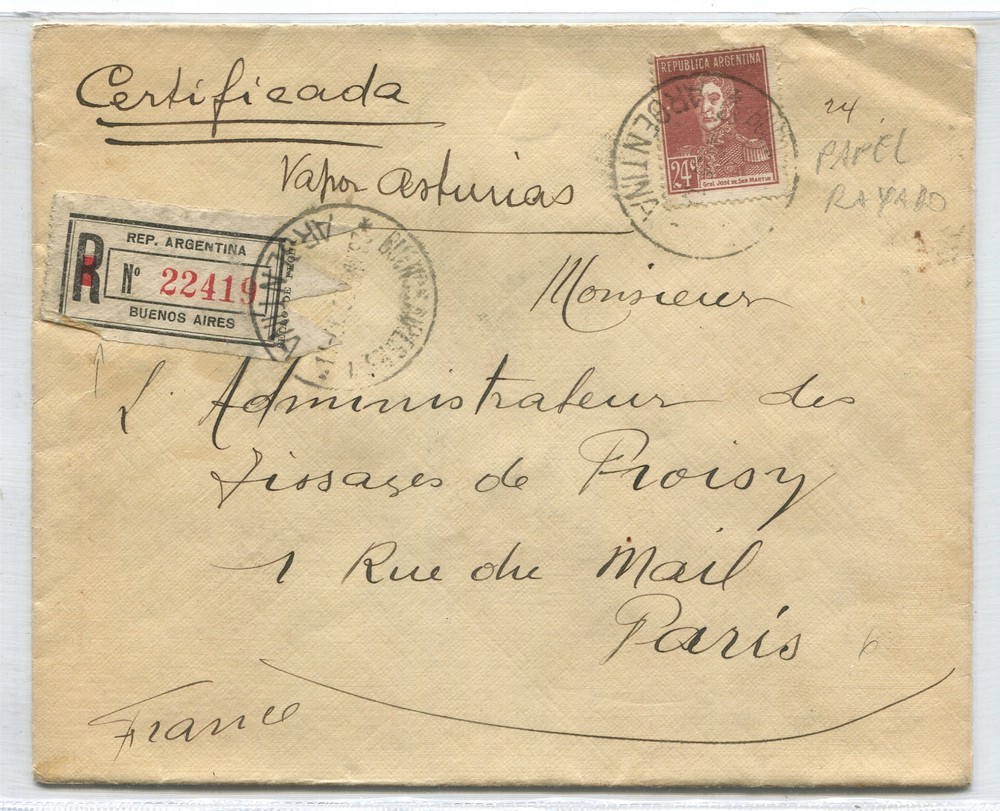 Certificada
Vapor Asturias
REPUBLICA ARGENTINA
24c
Gral. José de San Martin
ARGENTINA
24
PAPEL
RAYADO
REP. ARGENTINA
R Nº 22419
BUENOS AIRES
BUENOS AIRES
ARGENTINA
Monsieur
L'Administrateur des
Tissages de Froisy
1 Rue du Mail
Paris
6
France